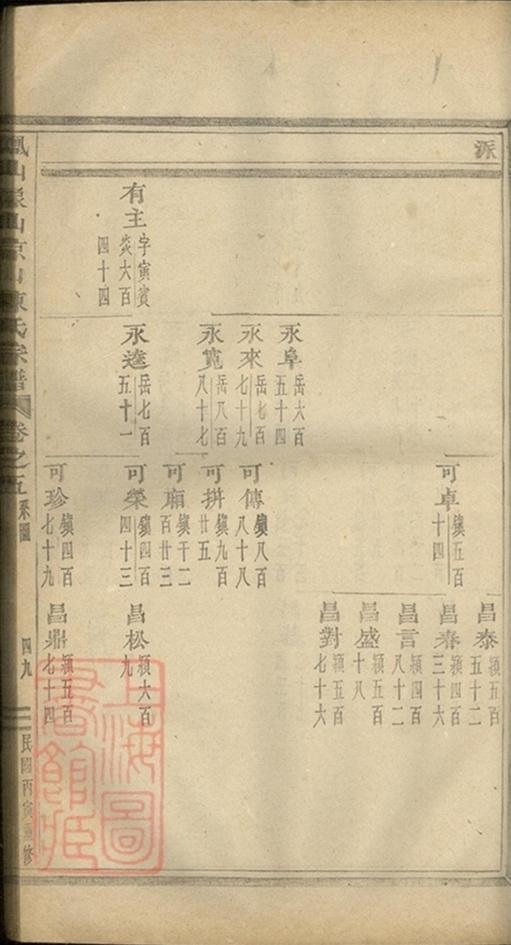 派
有主
字寅賓
炎六百
四十四
永阜
岳六百
五十四
永來
岳七百
七十九
永寬
岳八百
八十七
永達
岳七百
五十一
可卓
鎮五百
十四
可傳
鎮八百
八十八
可拼
鎮九百
廿五
可廂
鎮千二
百廿三
可榮
鎮四百
四十三
可珍
鎮四百
七十九
昌泰
穎五百
五十二
昌春
穎四百
三十六
昌言
穎四百
八十二
昌盛
穎五百
十八
昌對
穎五百
七十六
昌松
穎六百
九
昌鼎
穎五百
七十四
鳳山㟍山京山陳氏宗譜
卷之五
系圖
四九
民國丙寅重修
上海圖
書館藏